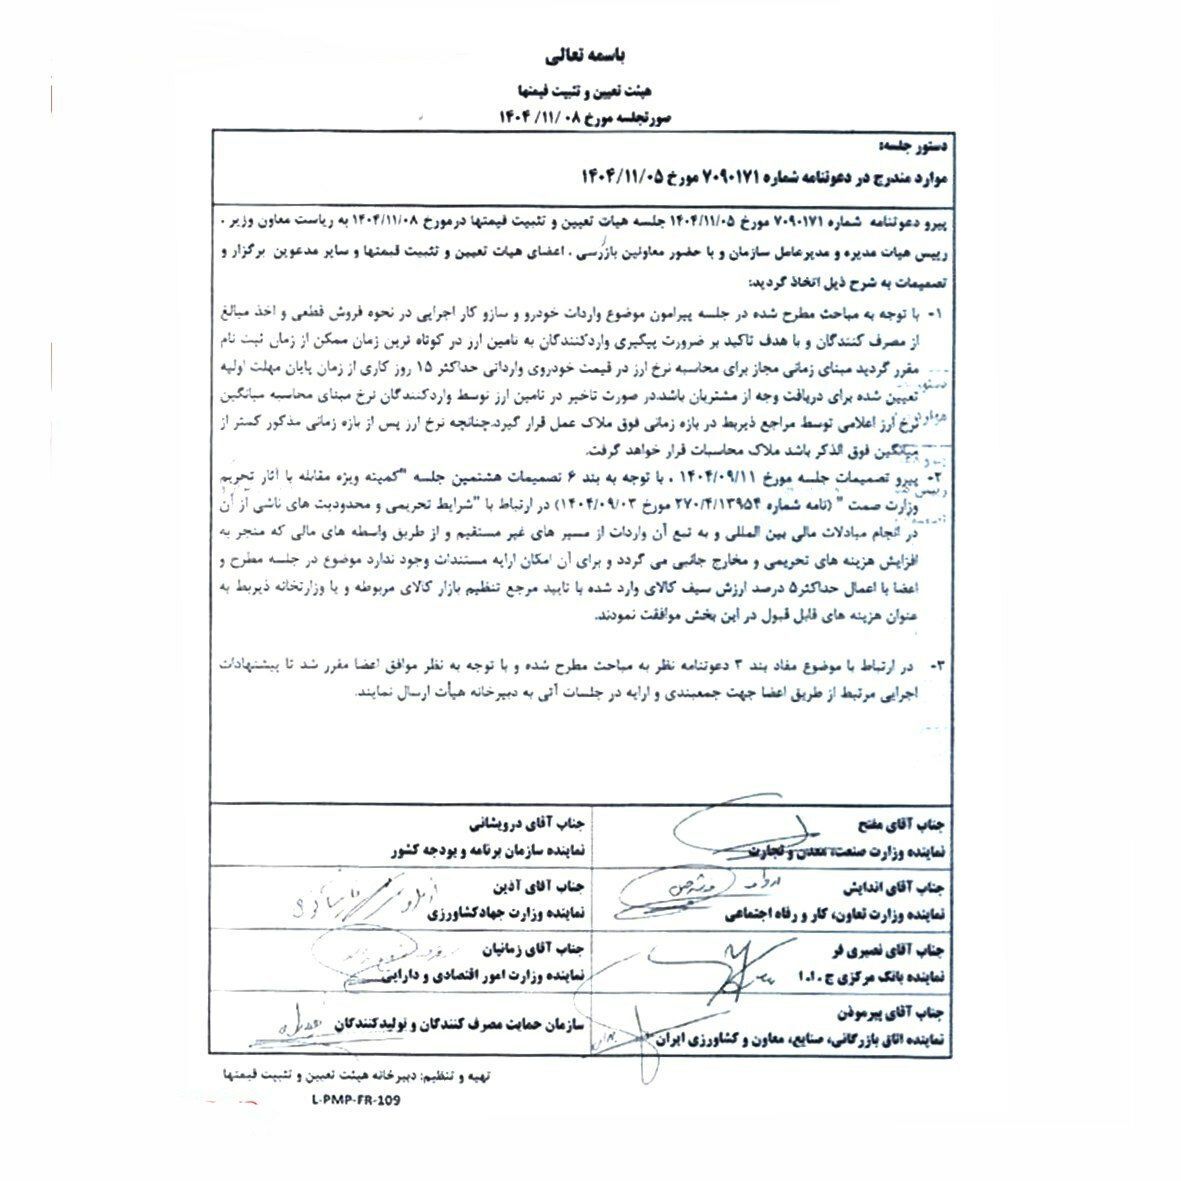 باسمه تعالی
هیئت تعیین و تثبیت قیمتها
صورتجلسه مورخ ۱۴۰۴/۱۱/۰۸
دستور جلسه:
موارد مندرج در دعوتنامه شماره ۷۰۹۰۱۷۱ مورخ ۱۴۰۴/۱۱/۰۵
پیرو دعوتنامه شماره ۷۰۹۰۱۷۱ مورخ ۱۴۰۴/۱۱/۰۵ جلسه هیات تعیین و تثبیت قیمتها درمورخ ۱۴۰۴/۱۱/۰۸ به ریاست معاون وزیر ،
رییس هیات مدیره و مدیرعامل سازمان و با حضور معاونین بازرسی ، اعضای هیات تعیین و تثبیت قیمتها و سایر مدعوین برگزار و
تصمیمات به شرح ذیل اتخاذ گردید:
۱- با توجه به مباحث مطرح شده در جلسه پیرامون موضوع واردات خودرو و سازو کار اجرایی در نحوه فروش قطعی و اخذ مبالغ
از مصرف کنندگان و با هدف تاکید بر ضرورت پیگیری واردکنندگان به تامین ارز در کوتاه ترین زمان ممکن از زمان ثبت نام
مقرر گردید مبنای زمانی مجاز برای محاسبه نرخ ارز در قیمت خودروی وارداتی حداکثر ۱۵ روز کاری از زمان پایان مهلت اولیه
تعیین شده برای دریافت وجه از مشتریان باشد.در صورت تاخیر در تامین ارز توسط واردکنندگان نرخ مبنای محاسبه میانگین
نرخ ارز اعلامی توسط مراجع ذیربط در بازه زمانی فوق ملاک عمل قرار گیرد.چنانچه نرخ ارز پس از بازه زمانی مذکور کمتر از
میانگین فوق الذکر باشد ملاک محاسبات قرار خواهد گرفت.
۲- پیرو تصمیمات جلسه مورخ ۱۴۰۴/۰۹/۱۱ ، با توجه به بند ۶ تصمیمات هشتمین جلسه "کمیته ویژه مقابله با آثار تحریم
وزارت صمت " (نامه شماره ۲۷۰/۴/۱۳۹۵۴ مورخ ۱۴۰۴/۰۹/۰۳) در ارتباط با "شرایط تحریمی و محدودیت های ناشی از آن
در انجام مبادلات مالی بین المللی و به تبع آن واردات از مسیر های غیر مستقیم و از طریق واسطه های مالی که منجر به
افزایش هزینه های تحریمی و مخارج جانبی می گردد و برای آن امکان ارایه مستندات وجود ندارد موضوع در جلسه مطرح و
اعضا با اعمال حداکثر۵ درصد ارزش سیف کالای وارد شده با تایید مرجع تنظیم بازار کالای مربوطه و یا وزارتخانه ذیربط به
عنوان هزینه های قابل قبول در این بخش موافقت نمودند.
۳- در ارتباط با موضوع مفاد بند ۳ دعوتنامه نظر به مباحث مطرح شده و با توجه به نظر موافق اعضا مقرر شد تا پیشنهادات
اجرایی مرتبط از طریق اعضا جهت جمعبندی و ارایه در جلسات آتی به دبیرخانه هیأت ارسال نمایند.
جناب آقای مفتح
نماینده وزارت صنعت، معدن و تجارت
جناب آقای درویشانی
نماینده سازمان برنامه و بودجه کشور
جناب آقای اندایش
نماینده وزارت تعاون، کار و رفاه اجتماعی
جناب آقای آذین
نماینده وزارت جهادکشاورزی
جناب آقای نصیری فر
نماینده بانک مرکزی ج . ا. ا
جناب آقای زمانیان
نماینده وزارت امور اقتصادی و دارایی
جناب آقای پیرموذن
نماینده اتاق بازرگانی، صنایع، معاون و کشاورزی ایران
سازمان حمایت مصرف کنندگان و تولیدکنندگان
تهیه و تنظیم: دبیرخانه هیئت تعیین و تثبیت قیمتها
L-PMP-FR-109